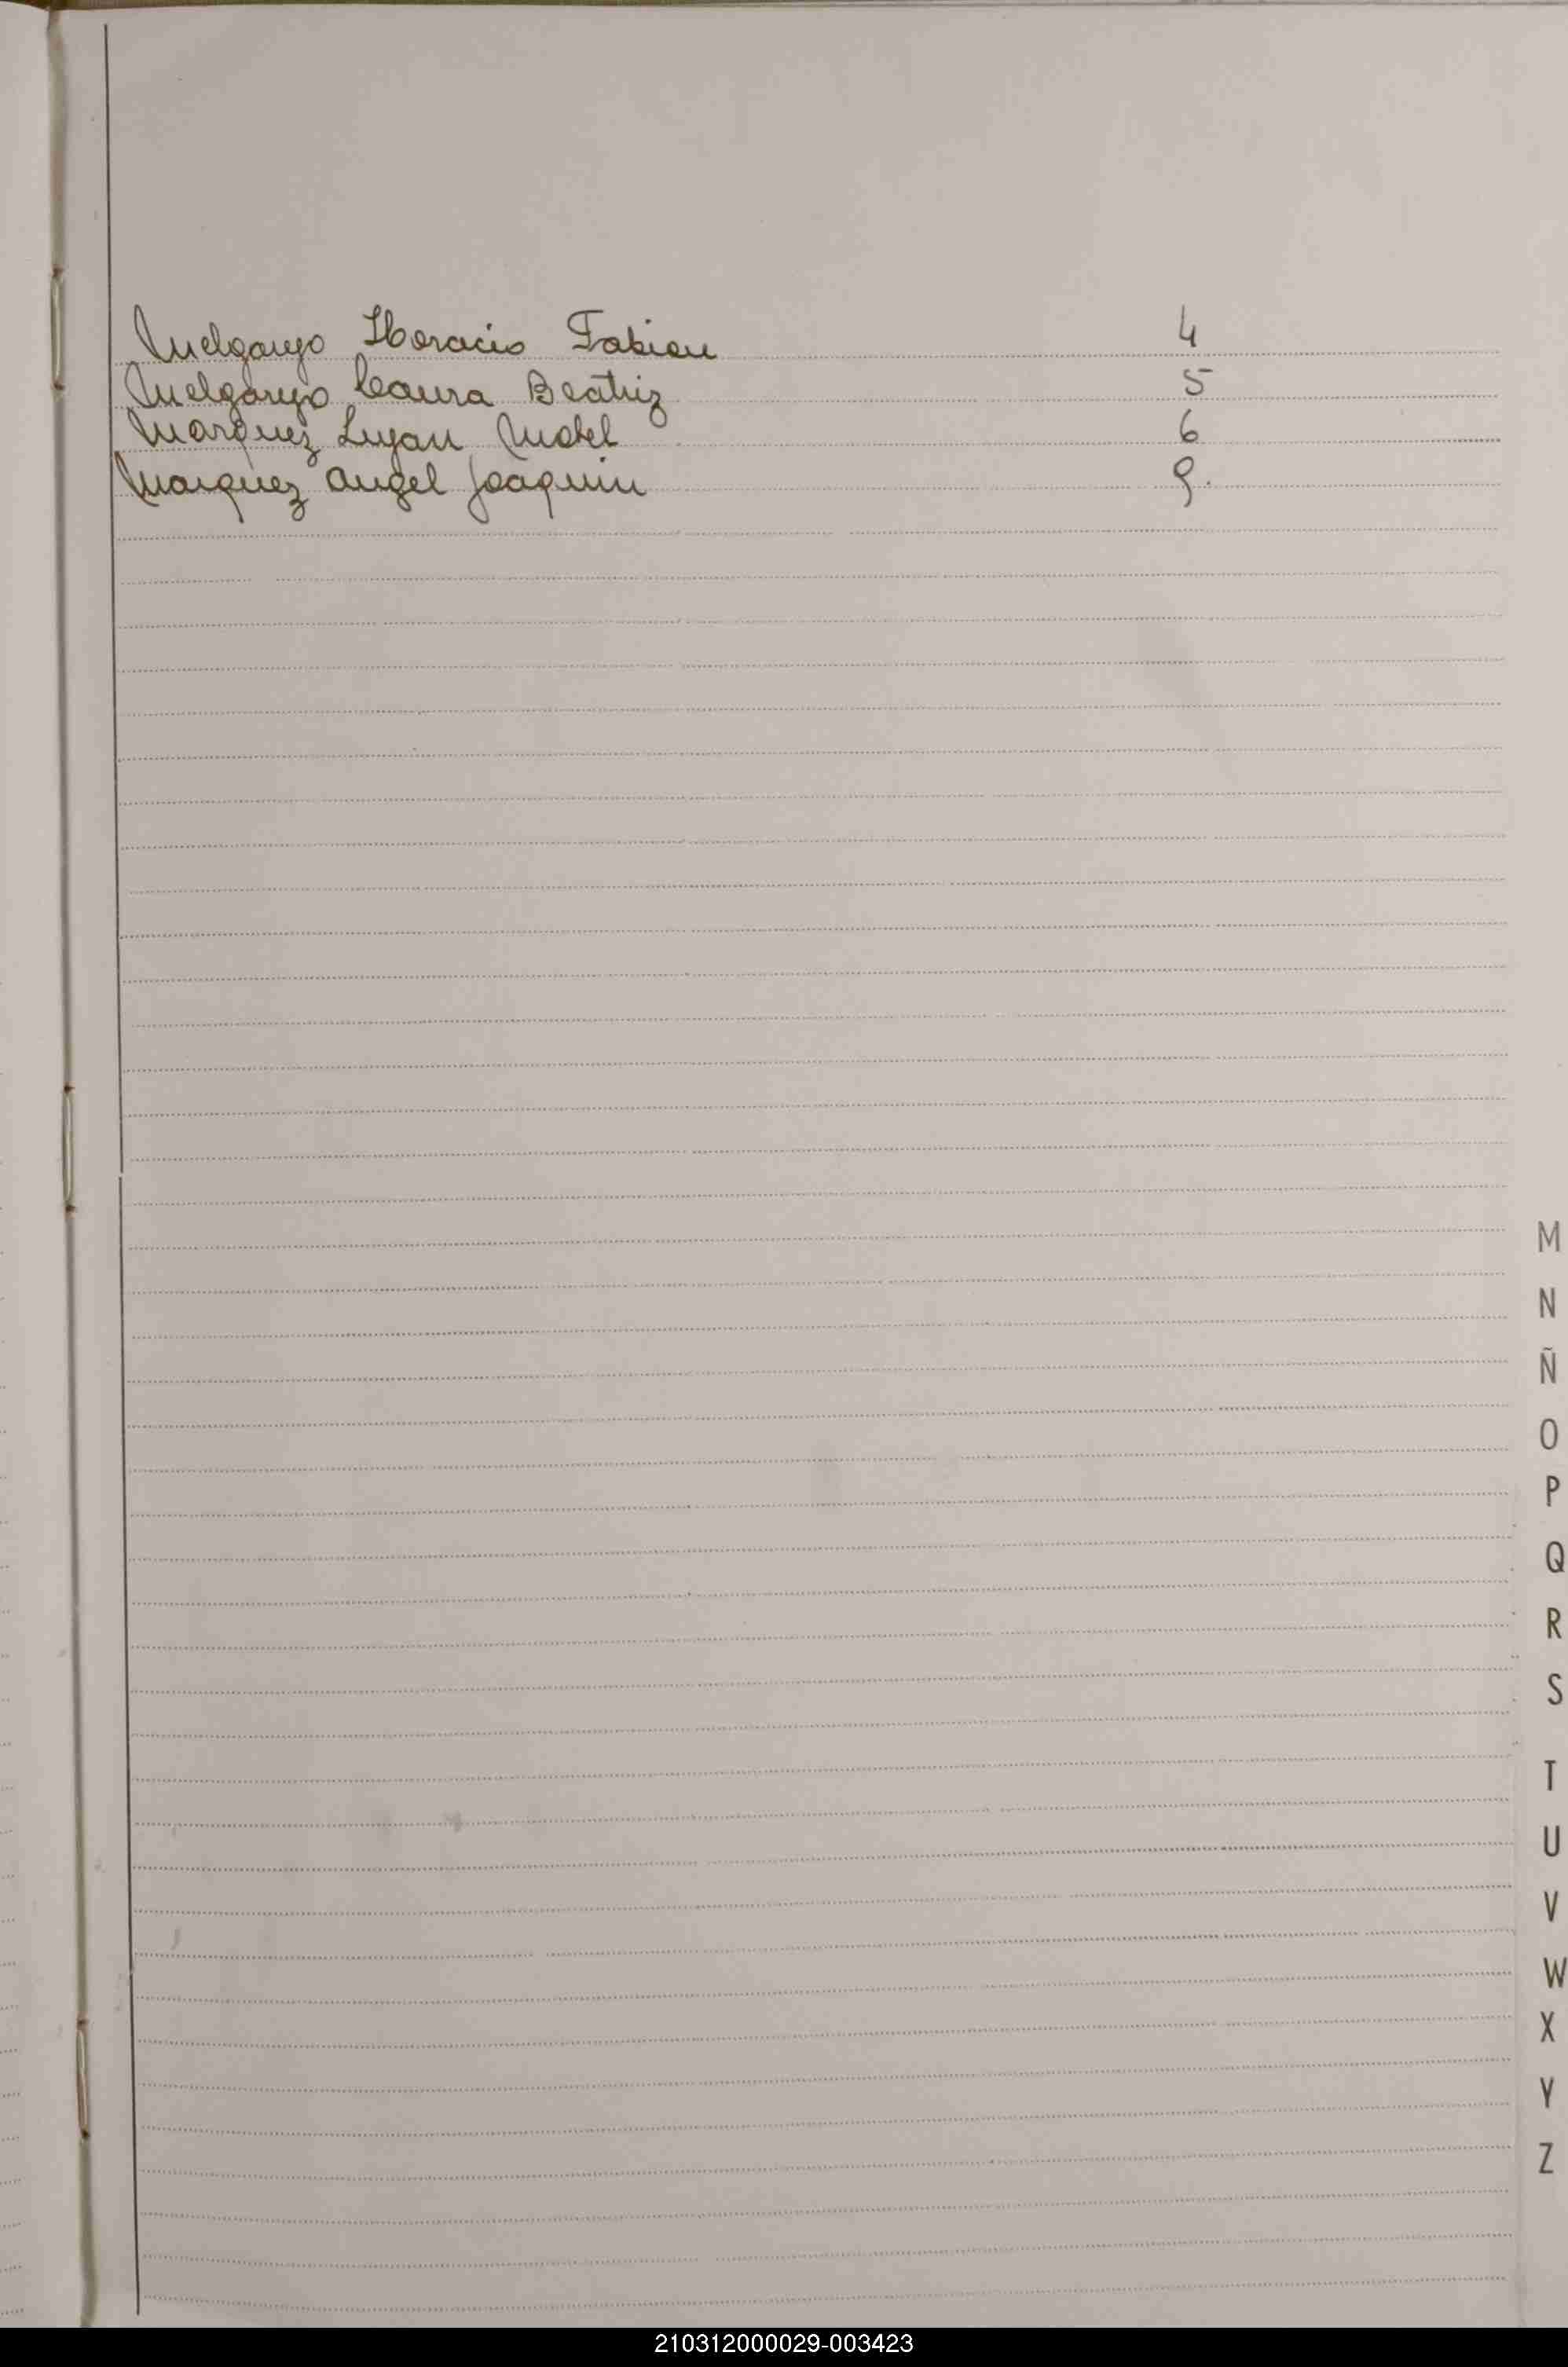 Melgarejo Horacio Fabian 4
Melgarejo Laura Beatriz 5
Marquez Lujan Mabel 6
Marquez Angel Joaquin 9.
M
N
Ñ
O
P
Q
R
S
T
U
V
W
X
Y
Z
210312000029-003423